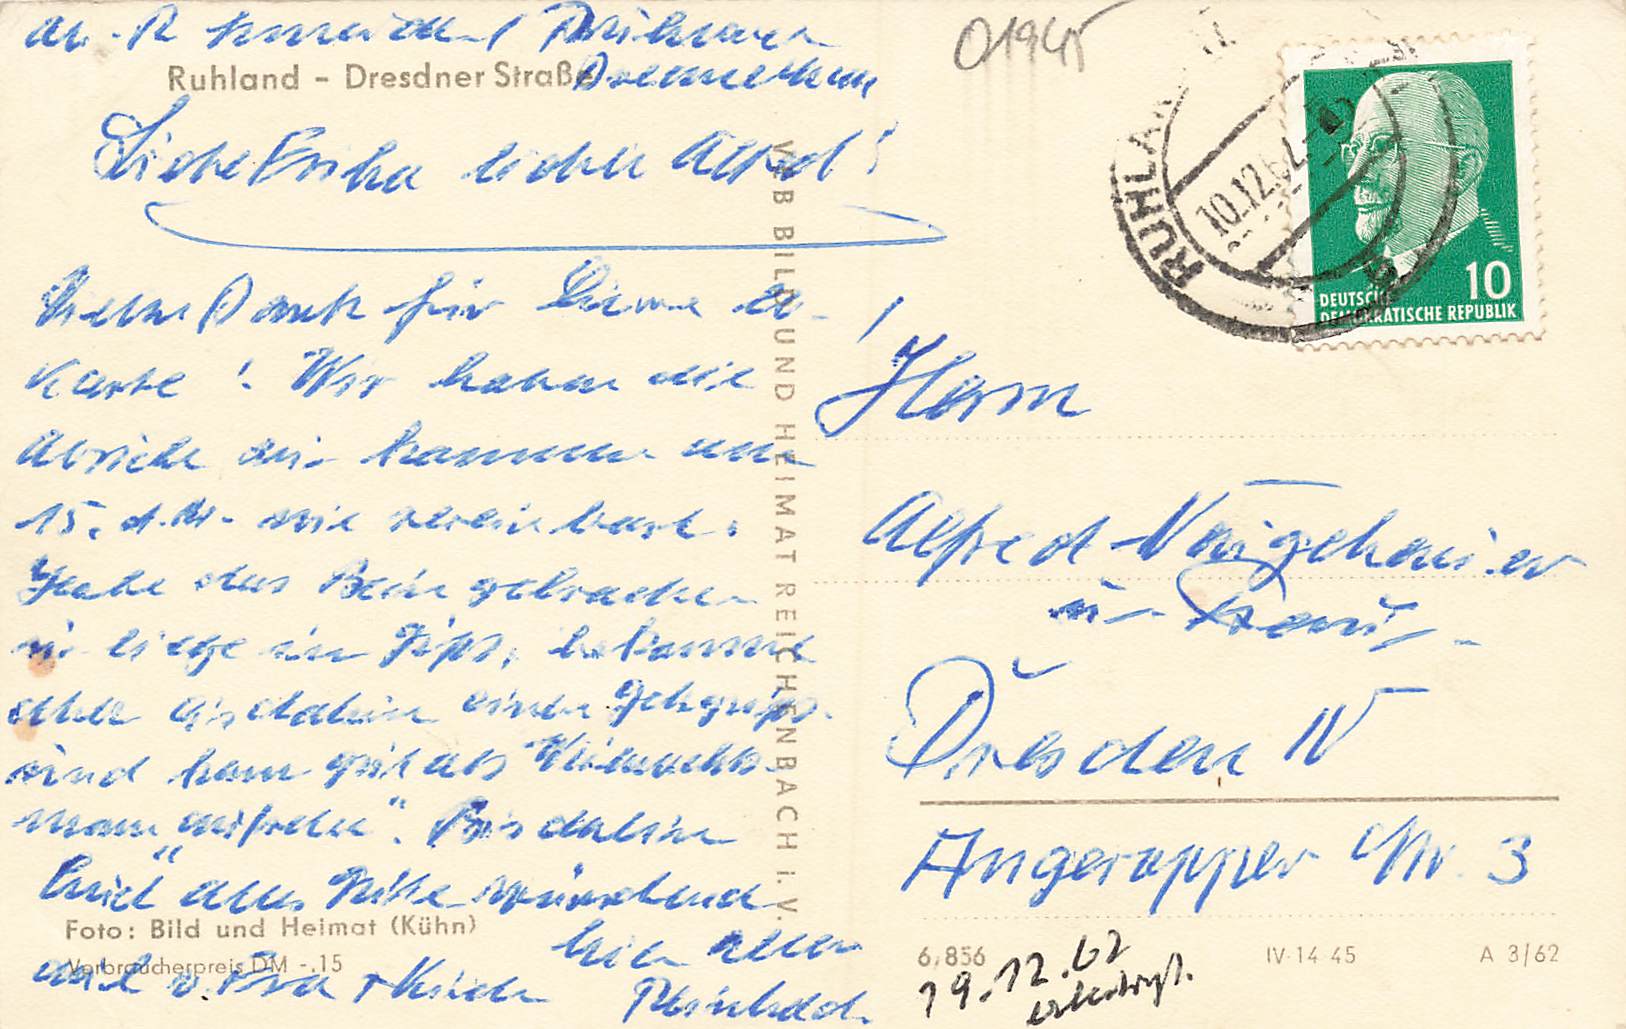 Ruhland - Dresdner Straße
Liebe Erika lieber Alfred!
Vielen Dank für Eure A-
Karte! Wir haben die
Absicht zu kommen am
15. d. M. wie vereinbart.
Habe das Bein gebrochen
u. liege in Gips, bekomme
aber bis dahin einen Gehgips
und kann gut als Weihnachts-
mann "auftreten". Bis dahin
Euch alles Gute wünschend
Euer alter
Reinhard
auch v. Eva + Kinder
Foto: Bild und Heimat (Kühn)
Verbraucherpreis DM -.15
VEB BILD UND HEIMAT REICHENBACH I. V.
01945
RUHLAND
10.12.62
10
DEUTSCHE
DEMOKRATISCHE REPUBLIK
Herrn
Alfred
u. Frau
Dresden N
Angerapper Str. 3
6,856
IV-14-45
A 3/62
19.12.62